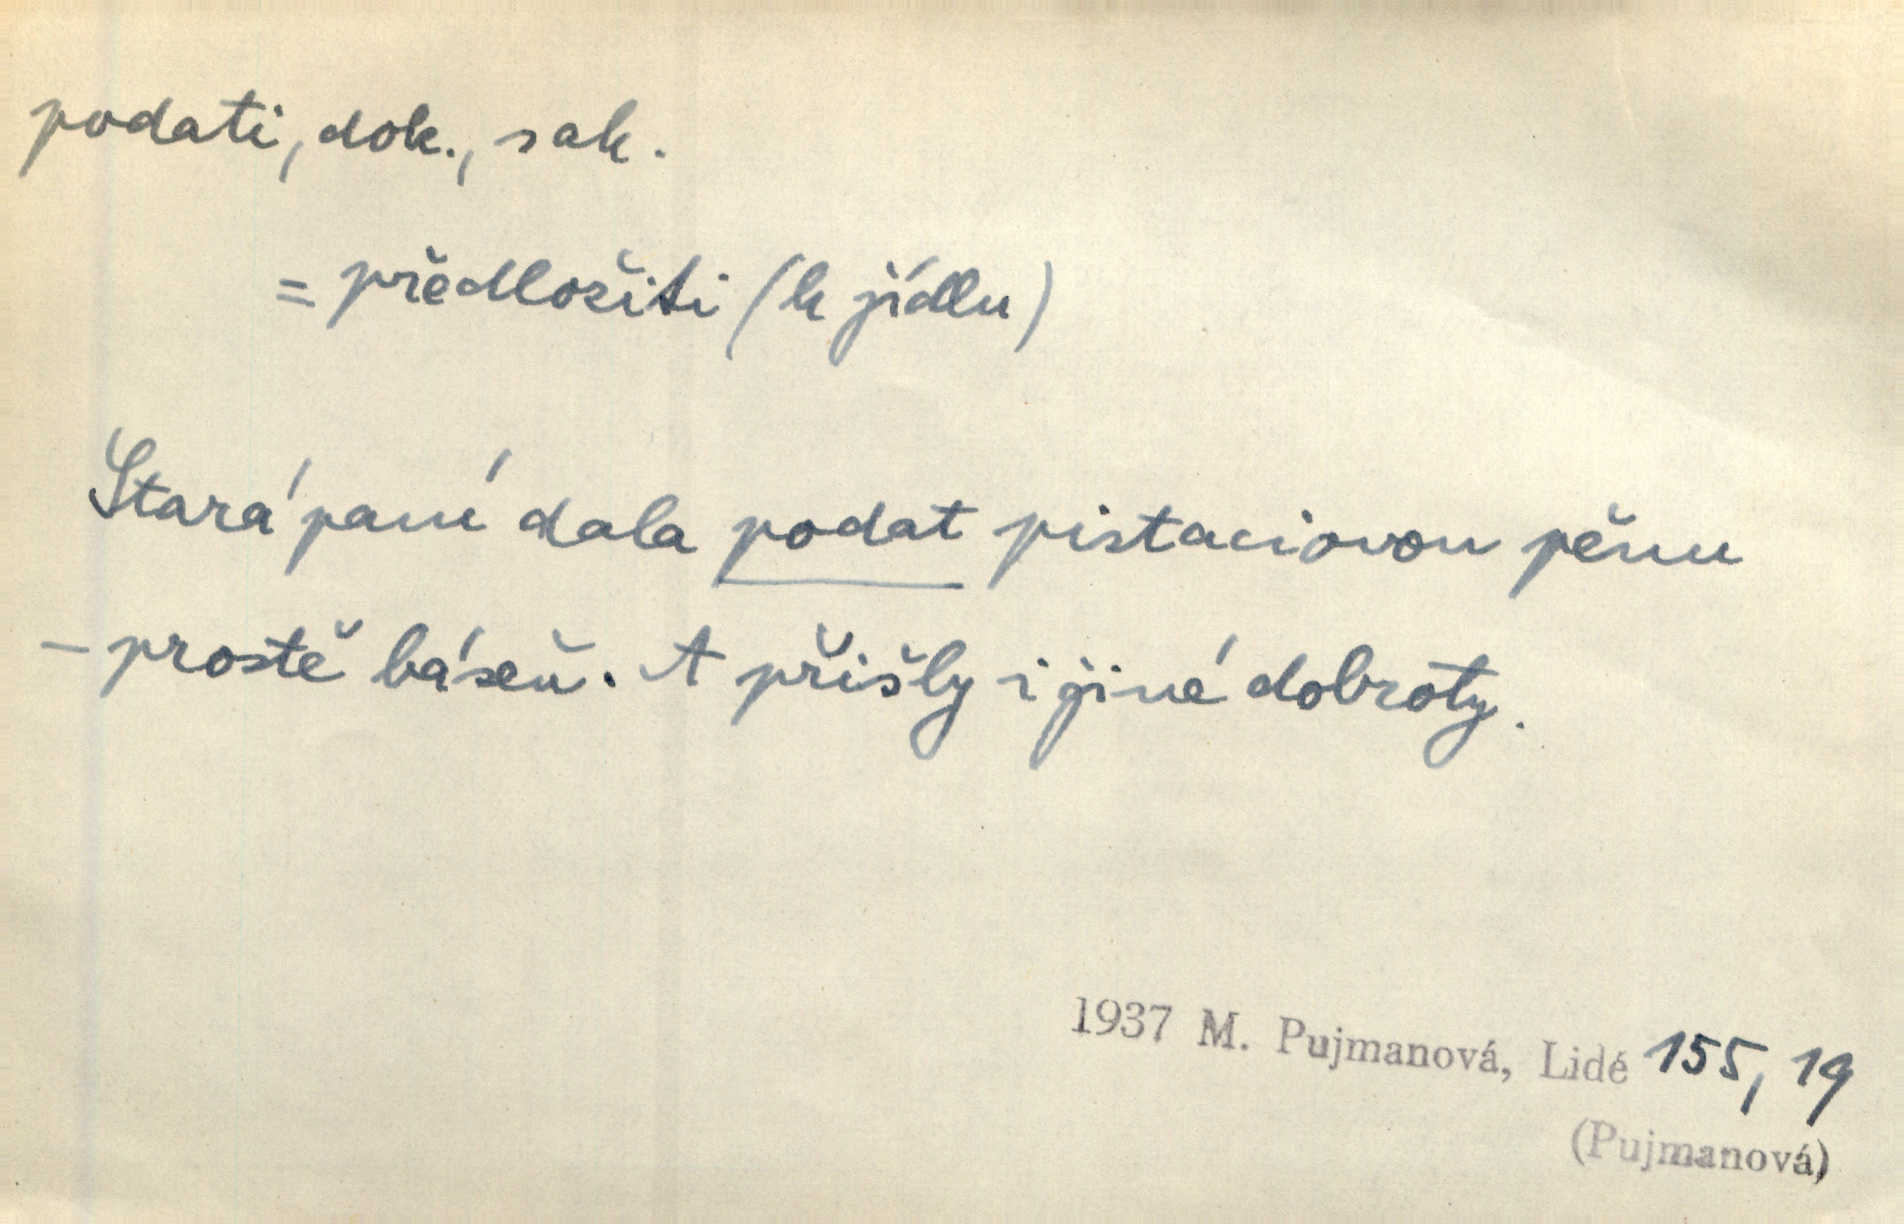 podati, dok., sak.
= předložiti (k jídlu)
Stará paní dala podat pistaciovou pěnu
– prostě báseň. A přišly i jiné dobroty.
1937 M. Pujmanová, Lidé 155, 19
(Pujmanová)